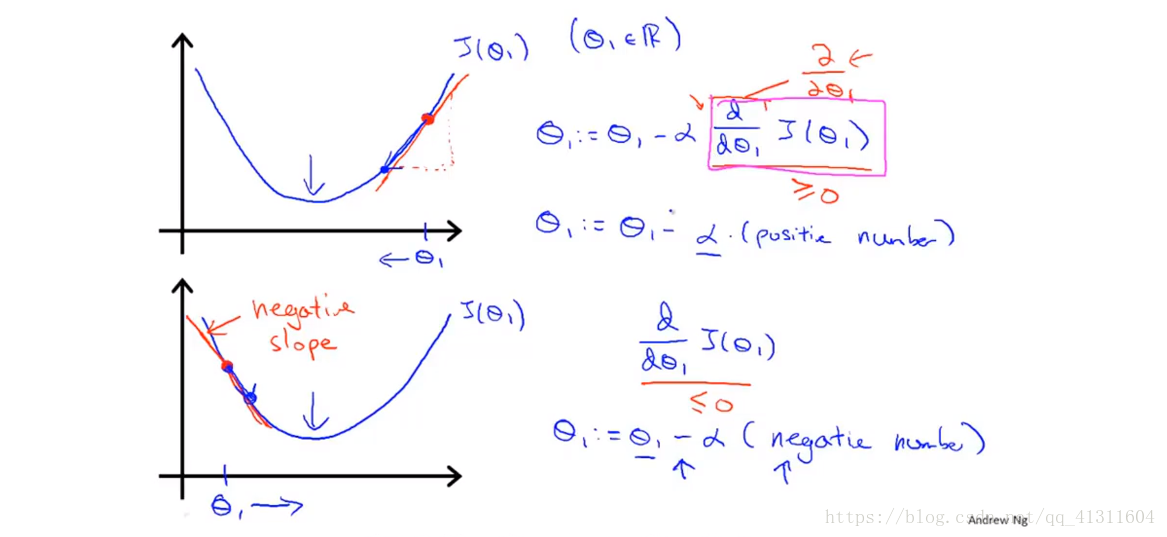 J(θ₁) (θ₁ ∈ ℝ)
∂/∂θ₁ ←
θ₁ := θ₁ - α d/dθ₁ J(θ₁)
≥ 0
θ₁ := θ₁ - α · (positie number)
← θ₁
negative
slope
J(θ₁)
d/dθ₁ J(θ₁)
≤ 0
θ₁ := θ₁ - α (negatie number)
θ₁ →
https://blog.csdn.net/qq_41311604
Andrew Ng